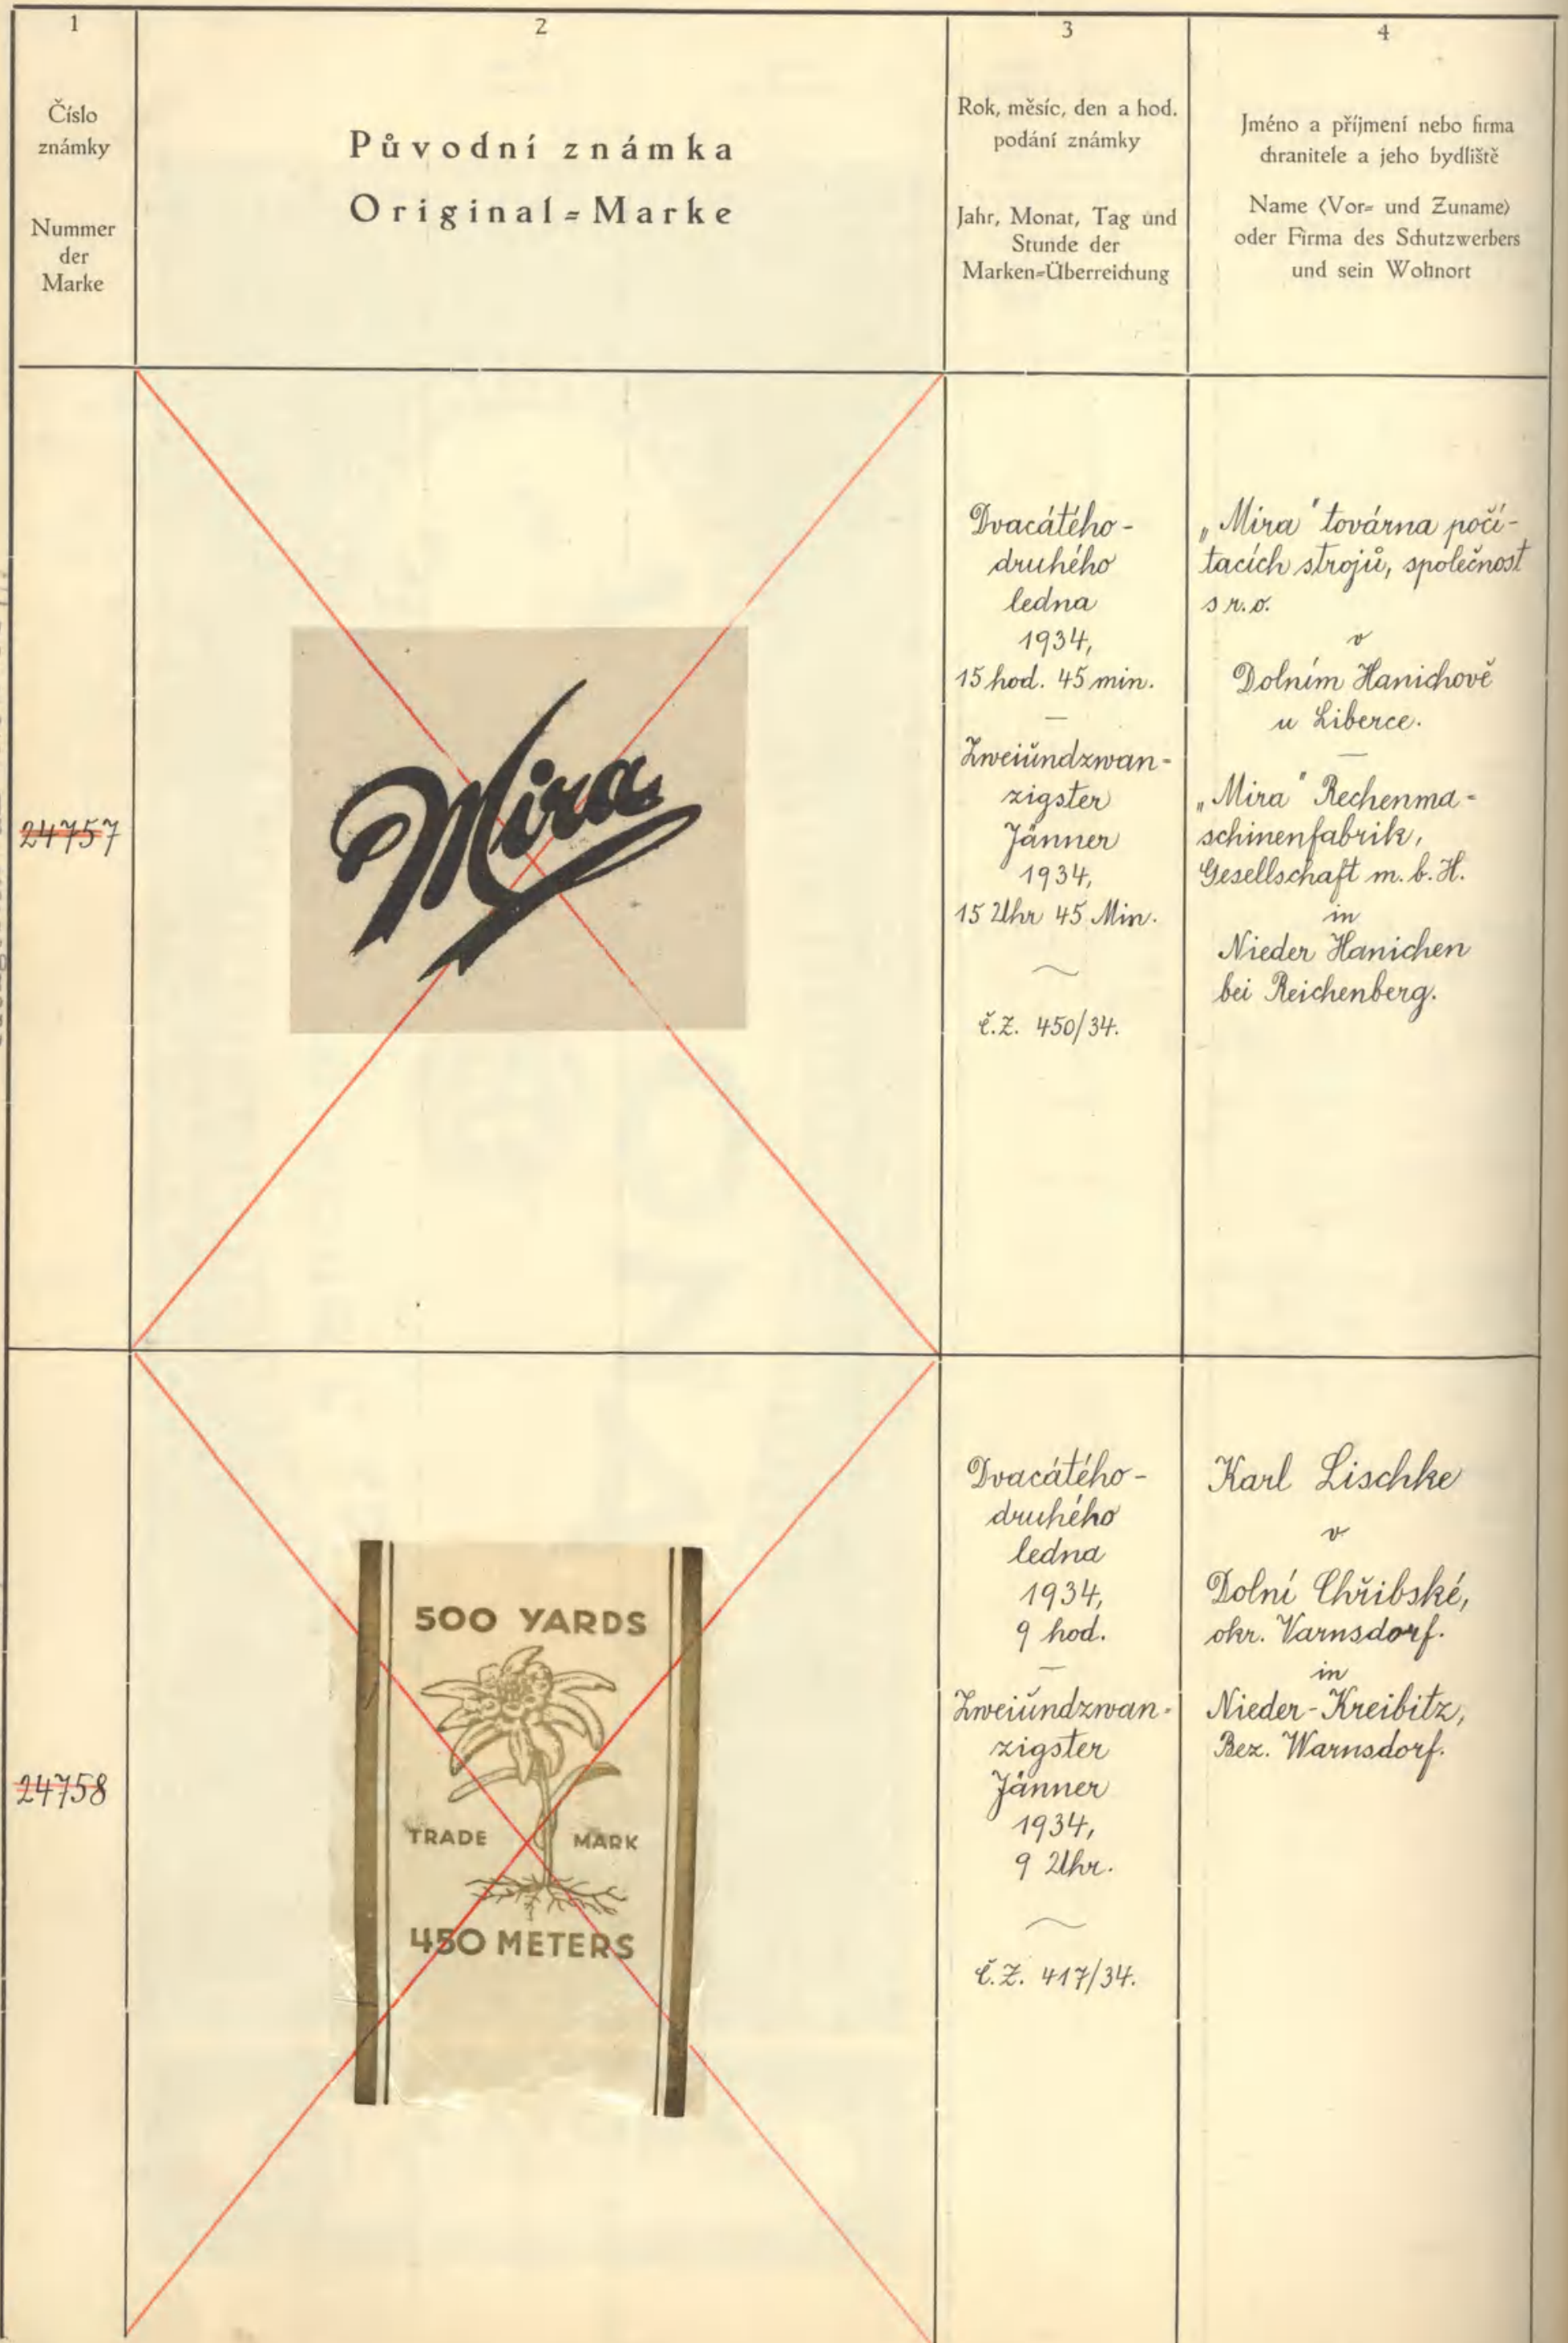 1
Číslo
známky
Nummer
der
Marke
2
Původní známka
Original=Marke
3
Rok, měsíc, den a hod.
podání známky
Jahr, Monat, Tag und
Stunde der
Marken=Überreichung
4
Jméno a příjmení nebo firma
chranitele a jeho bydliště
Name (Vor= und Zuname)
oder Firma des Schutzwerbers
und sein Wohnort
24757
Mira
Dvacátého-
druhého
ledna
1934,
15 hod. 45 min.
—
Zweiundzwan-
zigster
Jänner
1934,
15 Uhr 45 Min.
č.Z. 450/34.
„Mira" továrna počí-
tacích strojů, společnost
s r.o.
v
Dolním Hanichově
u Liberce.
—
„Mira" Rechenma-
schinenfabrik,
Gesellschaft m. b. H.
in
Nieder Hanichen
bei Reichenberg.
24758
500 YARDS
TRADE MARK
450 METERS
Dvacátého-
druhého
ledna
1934,
9 hod.
—
Zweiundzwan-
zigster
Jänner
1934,
9 Uhr.
č.Z. 417/34.
Karl Lischke
v
Dolní Chřibské,
okr. Varnsdorf.
in
Nieder-Kreibitz,
Bez. Warnsdorf.